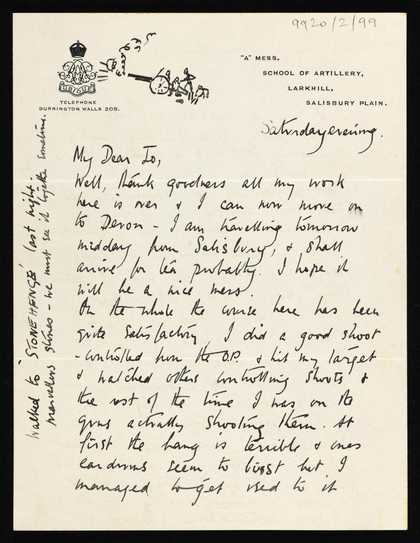 9920/2/99
"A" MESS,
SCHOOL OF ARTILLERY,
LARKHILL,
SALISBURY PLAIN.
TELEPHONE
DURRINGTON WALLS 205.
Saturday evening.
My Dear Jo,
Well, thank goodness all my work
here is over & I can now move on
to Devon - I am travelling tomorrow
midday from Salisbury, & shall
arrive for tea probably. I hope it
will be a nice mess.
On the whole the course here has been
quite satisfactory I did a good shoot
- controlled from the O.P. & hit my target
& watched others controlling shoots &
the rest of the time I was on the
guns actually shooting them. At
first the bang is terrible & ones
eardrums seem to burst but I
managed to get used to it
Walked to 'STONEHENGE' last night.
marvellous stones - we must see it together sometime.